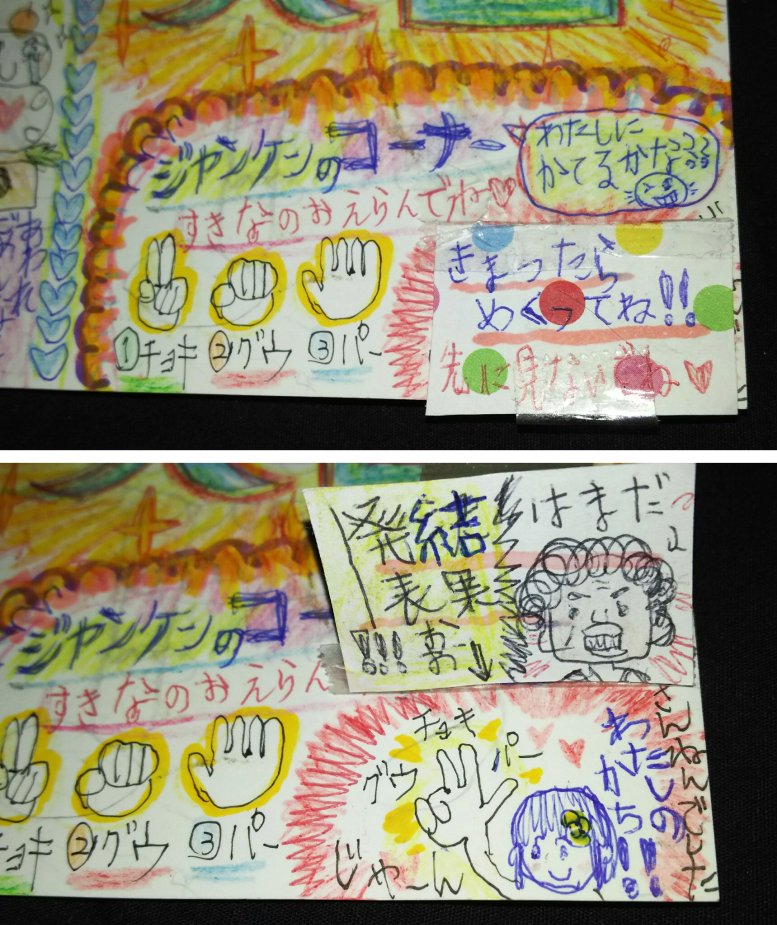 ジャンケンのコーナー
わたしに
かてるかナ
すきなのおえらんでね♡
①チョキ ②グウ ③パー
きまったら
めくってね!!
先に見ないでね♡
結果
発表
!!! おー↓
はまだよ
ジャンケンのコー
すきなのおえらん
チョキ ②グウ ③パー
チョキ
グウ
パー
じゃーん
わたしの
かち!!